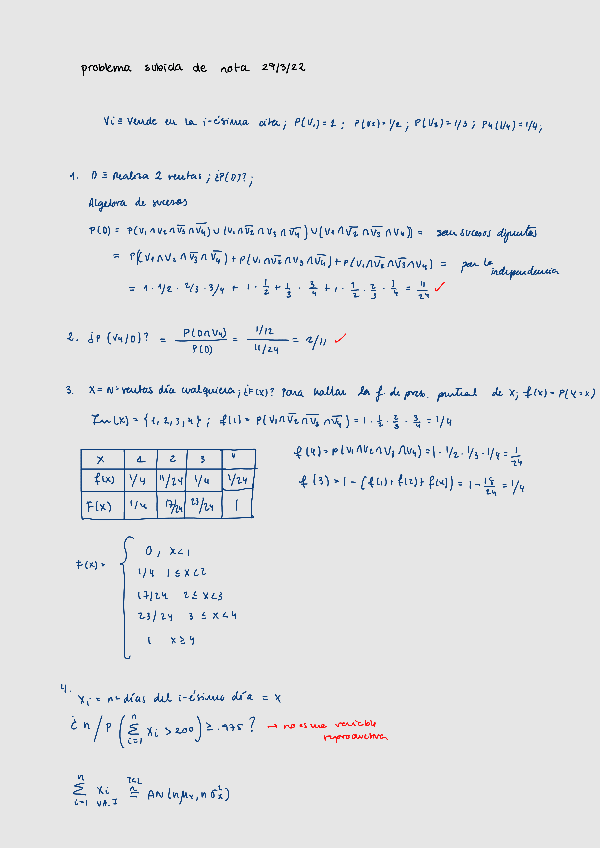 problema subida de nota 29/3/22
Vi ≡ vende en la i-ésima cita; P(V₁)=1; P(V2)=1/2; P(V3)=1/3; P4(V4)=1/4;
1. D ≡ Realiza 2 ventas; ¿P(D)?;
Algebra de sucesos
P(D) = P(V₁∩V₂∩V̅₃∩V̅₄)∪(V₁∩V̅₂∩V₃∩V̅₄)∪(V₁∩V̅₂∩V̅₃∩V₄)) = son sucesos disjuntos
= P(V₁∩V₂∩V̅₃∩V̅₄)+P(V₁∩V̅₂∩V₃∩V̅₄)+P(V₁∩V̅₂∩V̅₃∩V₄) = por la independencia
= 1·1/2·2/3·3/4 + 1·1/2+1/3·3/4+1·1/2·2/3·1/4 = 11/24 ✓
2. ¿P(V4/D)? = P(D∩V4)/P(D) = 1/12/11/24 = 2/11 ✓
3. X = Nº ventas día cualquiera; ¿F(x)? Para hallar la f. de prob. puntual de X; f(x) = P(X=x)
Im(X) = {1,2,3,4}; f(1) = P(V₁∩V̅₂∩V̅₃∩V̅₄) = 1·1/2·2/3·3/4 = 1/4
f(4) = P(V₁∩V₂∩V₃∩V4) = 1·1/2·1/3·1/4 = 1/24
X 1 2 3 4
f(x) 1/4 11/24 1/4 1/24
f(3) = 1-(f(1)+f(2)+f(4)) = 1-18/24 = 1/4
F(x) 1/4 17/24 23/24 1
F(x) =
0, x<1
1/4 1≤x<2
17/24 2≤x<3
23/24 3≤x<4
1 x≥4
4.
Xi = nº días del i-ésimo día = X
¿n/P(∑ i=1 n Xi >200) ≥ .975? → no es una variable
reproductiva
∑ i=1 n Xi V.A.I TCL ≅ AN(nμx, nσ²x)